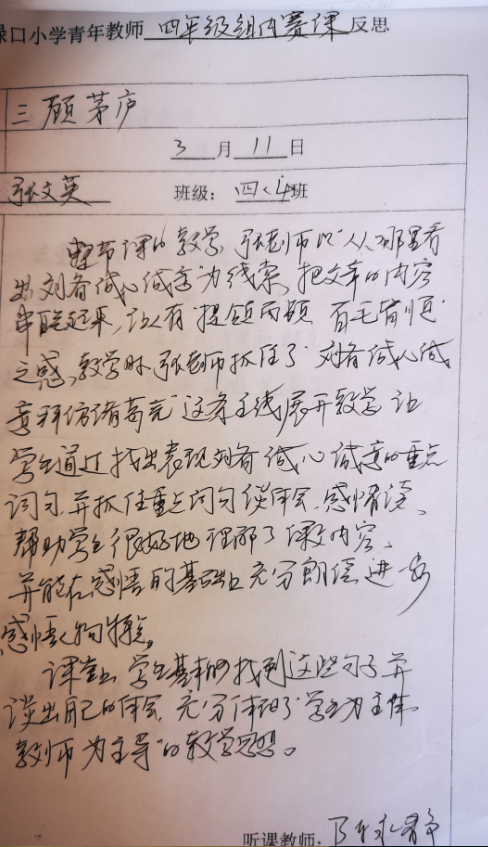 口小学青年教师 四年级组内赛课 反思
三顾茅庐
3 月 11 日
张文英 班级： 四〈4班
整节课的教学，张老师以“从哪里看
出刘备诚心诚意”为线索，把文章的内容
串联起来，让人有“提领而顿，百毛皆顺”
之感。教学时，张老师抓住了“刘备诚心诚
意拜访诸葛亮”这条主线展开教学，让
学生通过找出表现刘备诚心诚意的重点
词句，并抓住重点词句谈体会，感情读，
帮助学生很好地理解了课文内容，
并能在感悟的基础上充分朗读，进一步
感悟人物特点。
课堂上，学生基本能找到这些句子并
谈出自己的体会，充分体现了“学生为主体
教师为主导”的教学思想。
听课教师：